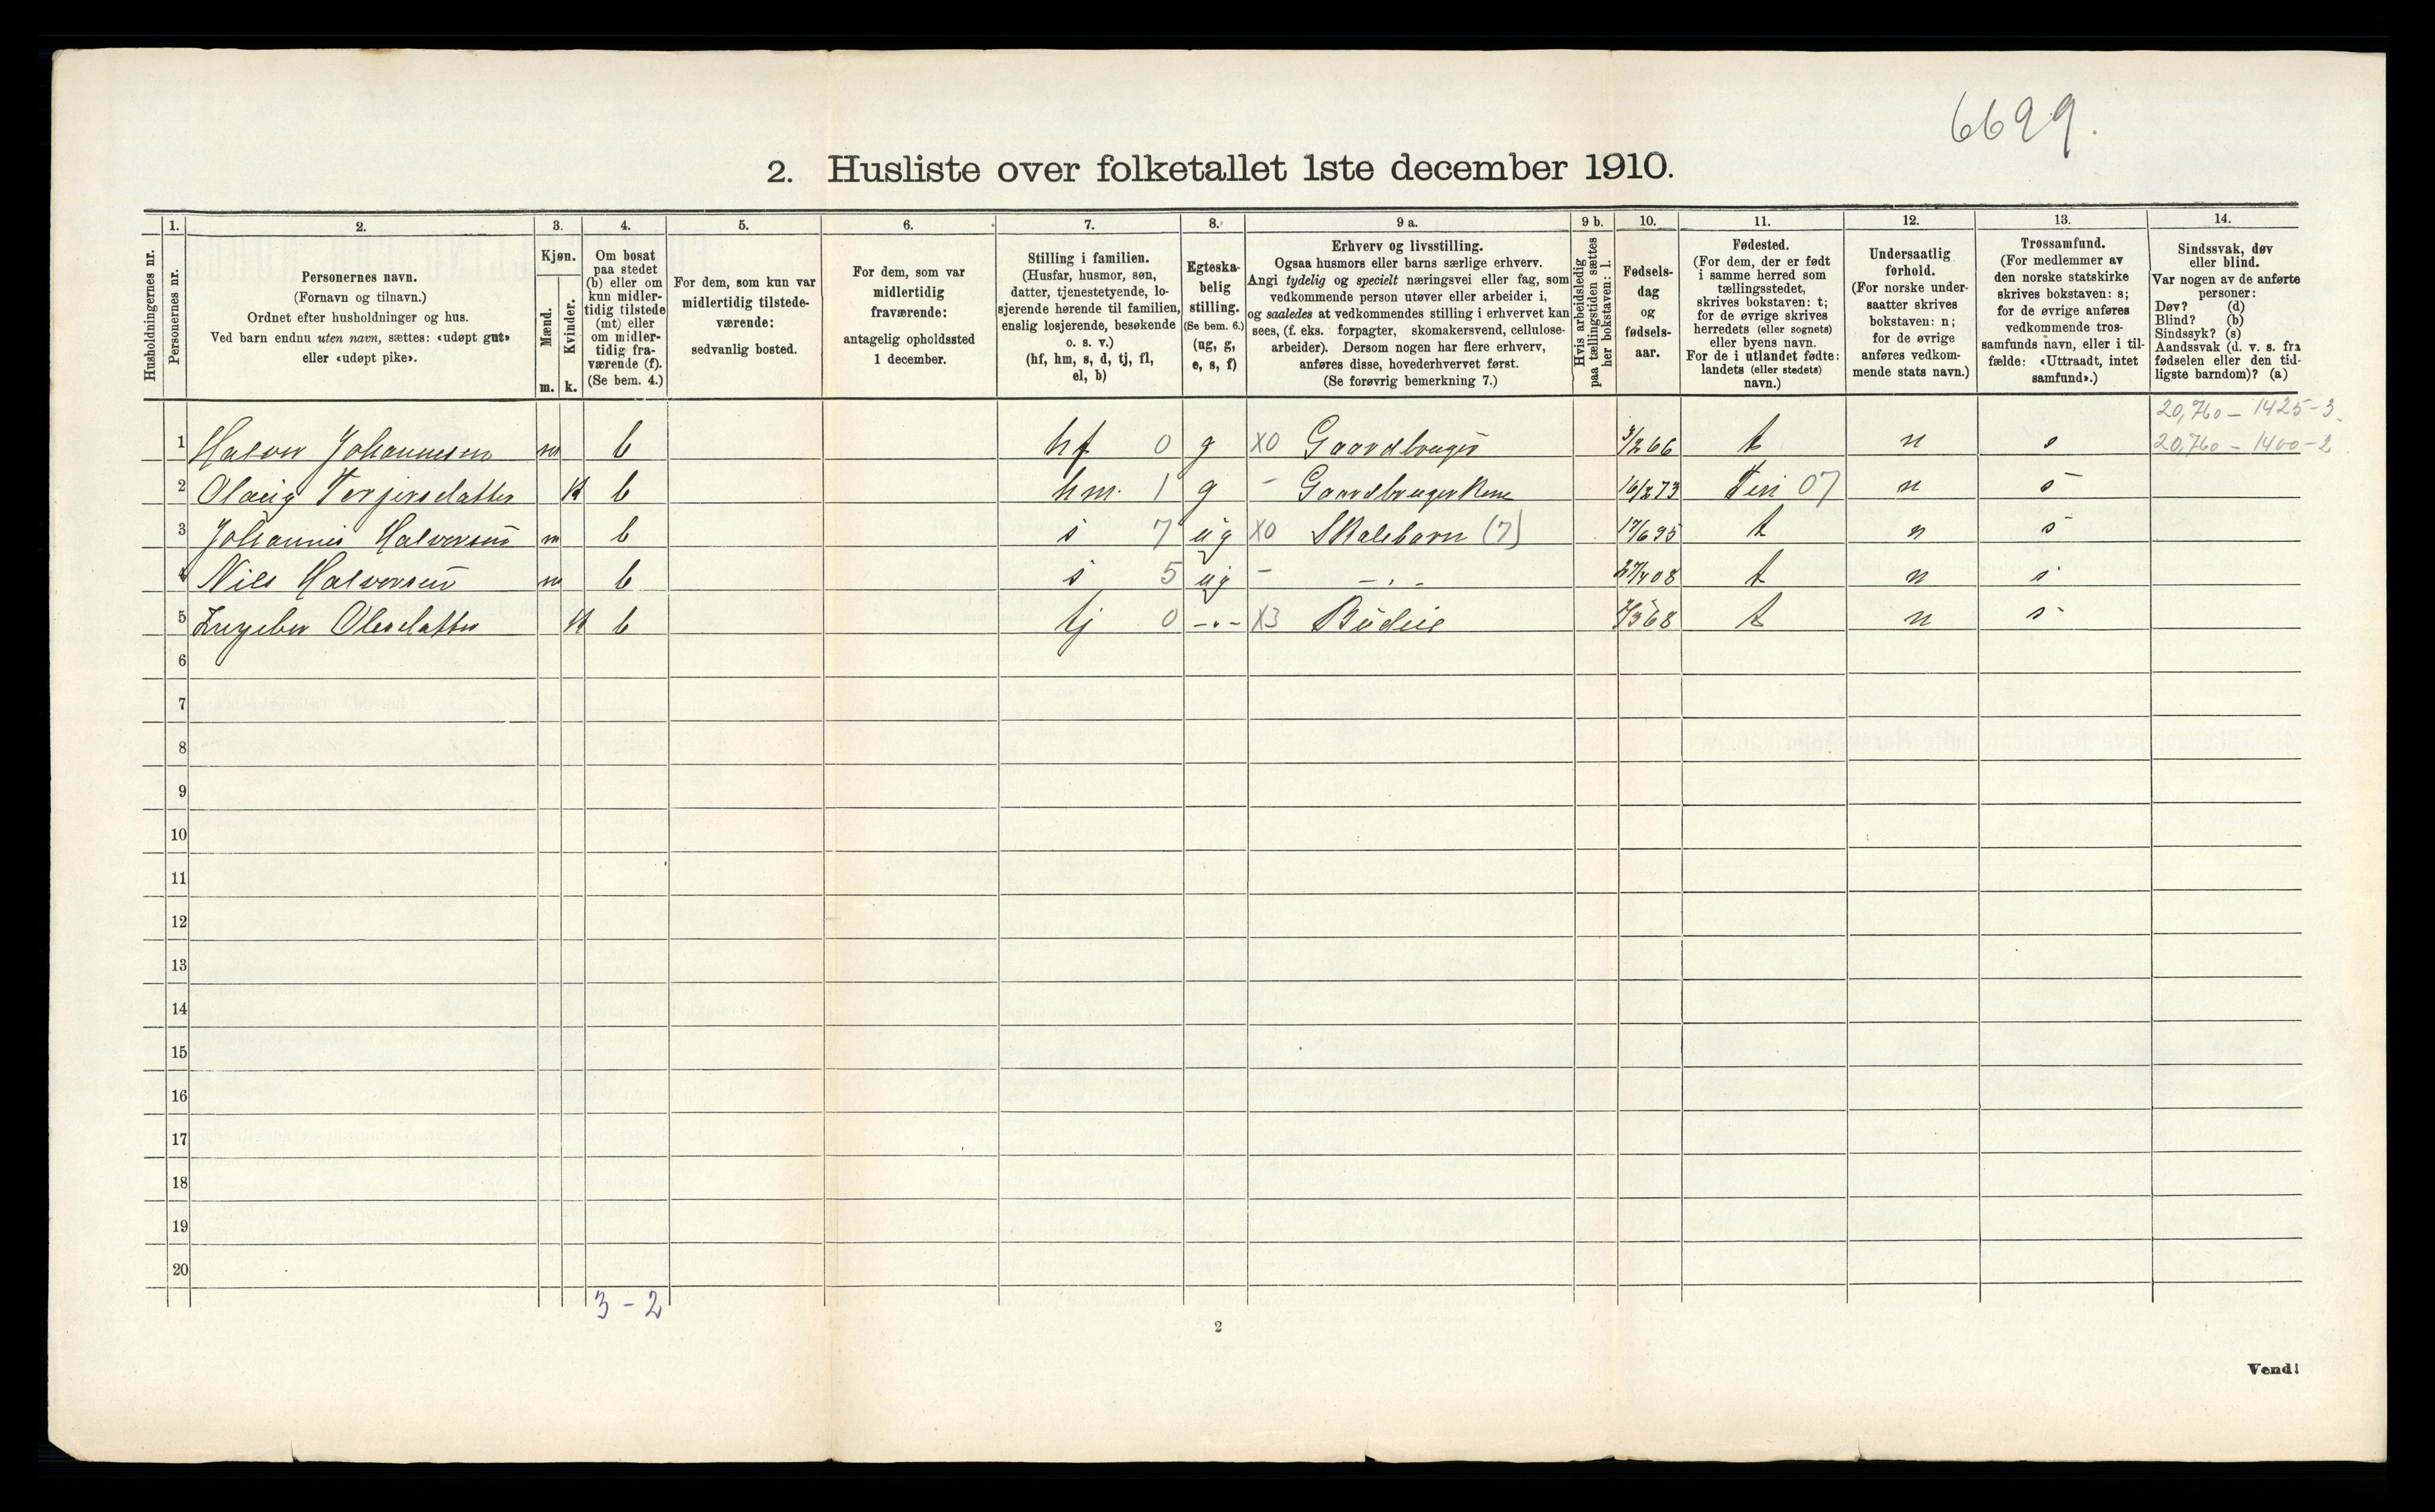 6699.
2. Husliste over folketallet 1ste december 1910.
Husholdningernes nr.
1.
Personernes nr.
2.
Personernes navn.
(Fornavn og tilnavn.)
Ordnet efter husholdninger og hus.
Ved barn endnu uten navn, sættes: «udøpt gut»
eller «udøpt pike».
3.
Kjøn.
Mænd.
Kvinder.
m. k.
4.
Om bosat
paa stedet
(b) eller om
kun midler-
tidig tilstede
(mt) eller
om midler-
tidig fra-
værende (f).
(Se bem. 4.)
5.
For dem, som kun var
midlertidig tilstede-
værende:
sedvanlig bosted.
6.
For dem, som var
midlertidig
fraværende:
antagelig opholdssted
1 december.
7.
Stilling i familien.
(Husfar, husmor, søn,
datter, tjenestetyende, lo-
sjerende hørende til familien,
enslig losjerende, besøkende
o. s. v.)
(hf, hm, s, d, tj, fl,
el, b)
8.
Egteska-
belig
stilling.
(Se bem. 6.)
(ug, g,
e, s, f)
9 a.
Erhverv og livsstilling.
Ogsaa husmors eller barns særlige erhverv.
Angi tydelig og specielt næringsvei eller fag, som
vedkommende person utøver eller arbeider i,
og saaledes at vedkommendes stilling i erhvervet kan
sees, (f. eks. forpagter, skomakersvend, cellulose-
arbeider). Dersom nogen har flere erhverv,
anføres disse, hovederhvervet først.
(Se forøvrig bemerkning 7.)
9 b.
Hvis arbeidsledig
paa tællingstiden sættes
her bokstaven: l.
10.
Fødsels-
dag
og
fødsels-
aar.
11.
Fødested.
(For dem, der er født
i samme herred som
tællingsstedet,
skrives bokstaven: t;
for de øvrige skrives
herredets (eller sognets)
eller byens navn.
For de i utlandet fødte:
landets (eller stedets)
navn.)
12.
Undersaatlig
forhold.
(For norske under-
saatter skrives
bokstaven: n;
for de øvrige
anføres vedkom-
mende stats navn.)
13.
Trossamfund.
(For medlemmer av
den norske statskirke
skrives bokstaven: s;
for de øvrige anføres
vedkommende tros-
samfunds navn, eller i til-
fælde: «Uttraadt, intet
samfund».)
14.
Sindssvak, døv
eller blind.
Var nogen av de anførte
personer:
Døv? (d)
Blind? (b)
Sindssyk? (s)
Aandssvak (d. v. s. fra
fødselen eller den tid-
ligste barndom)? (a)
20,760 – 1425-3.
1 Halvor Johannesen m b hf 0 g X0 Gaardbruger 3/2 66 t n s 20,760 – 1400-2
2 Olaug Terjersdatter k b hm. 1 g - Gaardbrugerkone 16/2 73 07 n s
3 Johannes Halvorsen m b s 7 ug X0 Skolebarn (7) 17/6 95 t n s
4 Nils Halvorsen m b s 5 ug - -„- 27/4 08 t n s
5 Ingebor Olesdatter k b tj 0 -„- X3 Budeie 68 t n s
6
7
8
9
10
11
12
13
14
15
16
17
18
19
20
3 - 2
2
Vend!